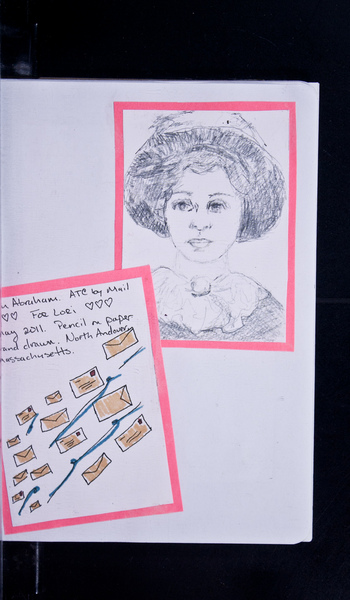 Abraham. ATC by Mail
♡♡ For Lori ♡♡♡
May 2011. Pencil on paper
and drawn. North Andover
Massachusetts.